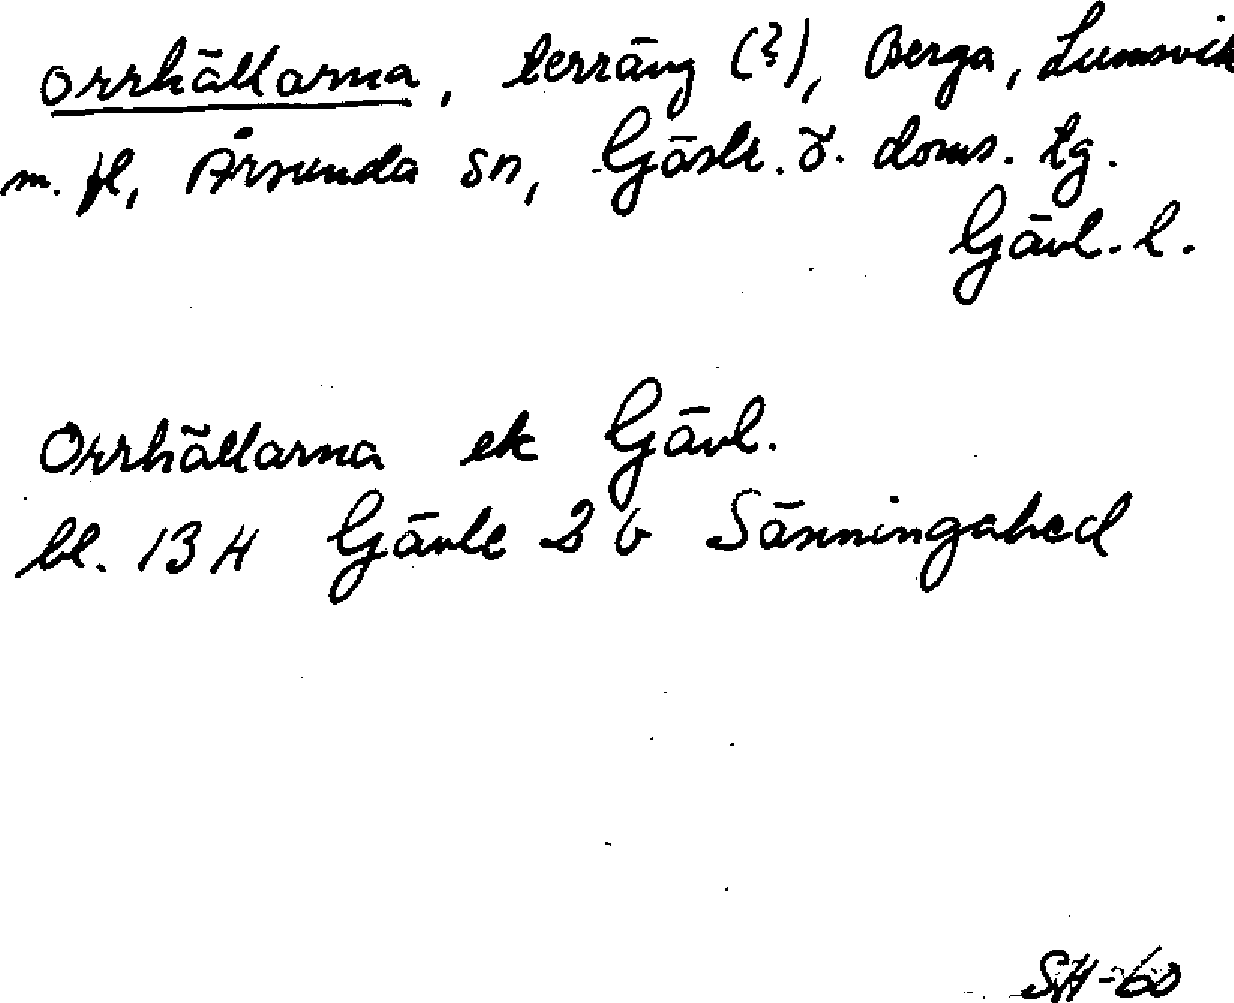 Orrhällarna, terräng (?), Berga, Lumsvik
m. fl, Årsunda sn, Gästr. ö. doms. tg.
Gävl. l.
Orrhällarna ek Gävl.
bl. 13 H Gävle 2 b Sänningahed
SH-60